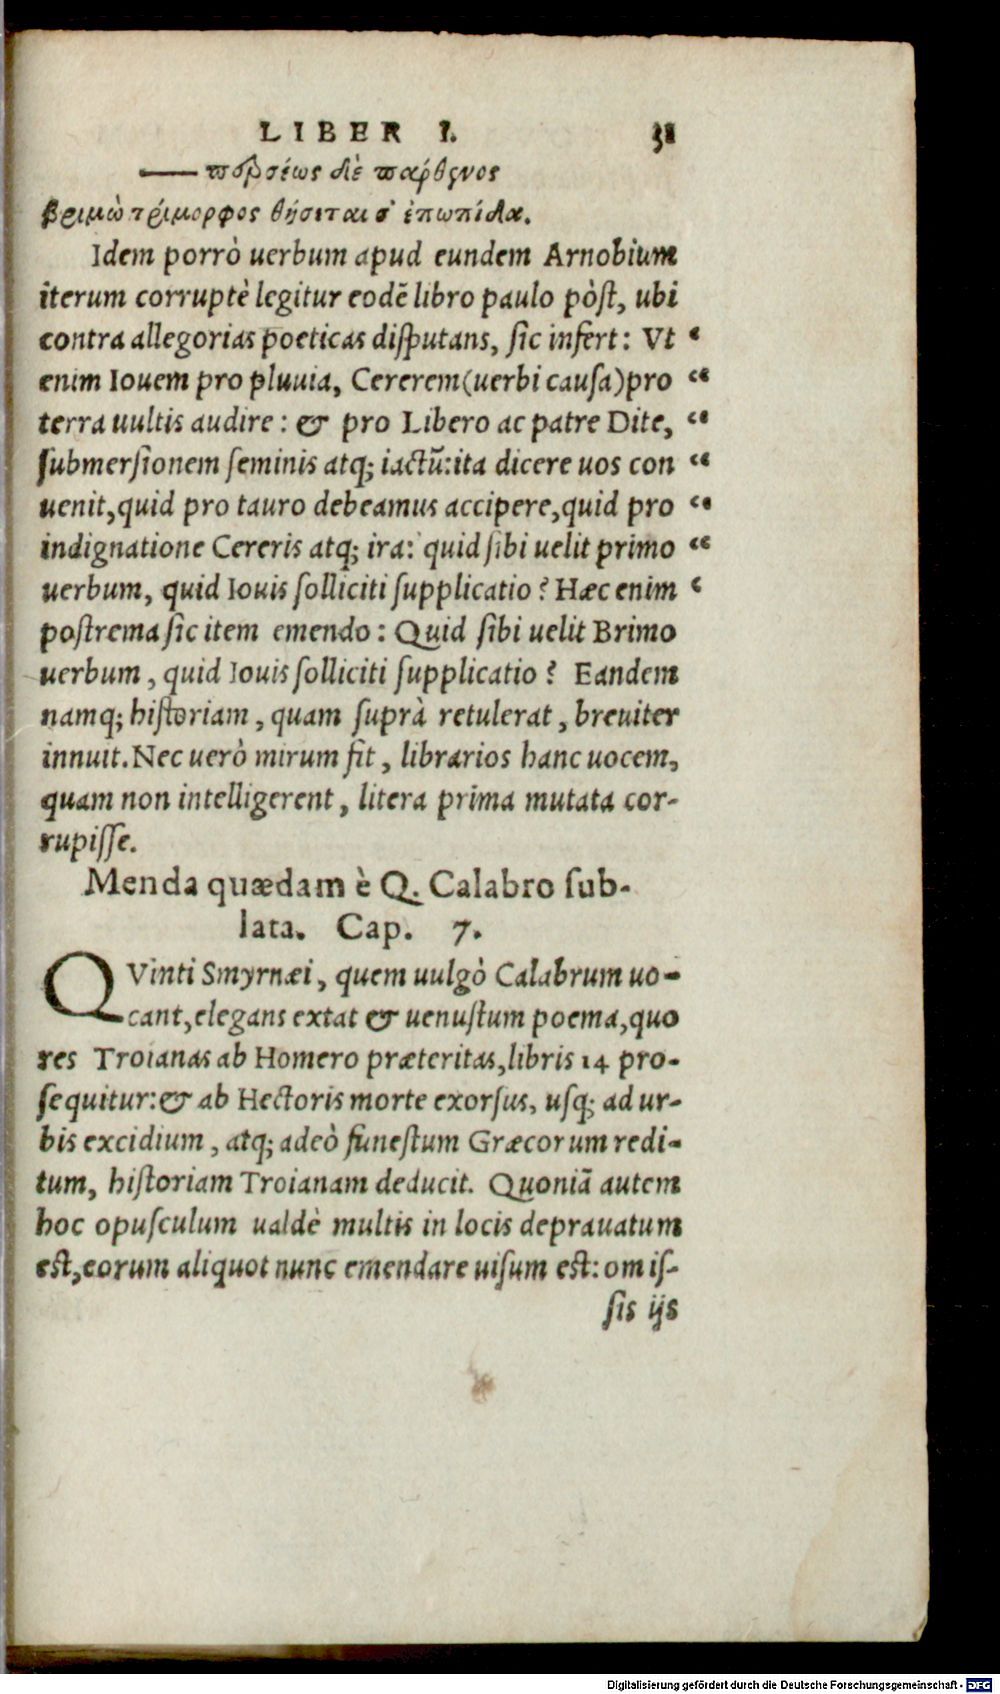 LIBER I. 31
—— περσέως δὲ παρθένος
βριμὼ τρίμορφος θήσεται σ' ἑπωπίδα.
Idem porrò uerbum apud eundem Arnobium
iterum corruptè legitur eodē libro paulo pòst, ubi
contra allegorias poeticas disputans, sic infert: Vt “
enim Iouem pro pluuia, Cererem(uerbi causa)pro “
terra uultis audire: & pro Libero ac patre Dite, “
submersionem seminis atq; iactū:ita dicere uos con “
uenit,quid pro tauro debeamus accipere,quid pro “
indignatione Cereris atq; ira: quid sibi uelit primo “
uerbum, quid Iouis solliciti supplicatio? Hæc enim “
postrema sic item emendo: Quid sibi uelit Brimo
uerbum, quid Iouis solliciti supplicatio? Eandem
namq; historiam, quam suprà retulerat, breuiter
innuit. Nec uerò mirum fit, librarios hanc uocem,
quam non intelligerent, litera prima mutata cor-
rupisse.
Menda quædam è Q. Calabro sub-
lata. Cap. 7.
QVinti Smyrnæi, quem uulgò Calabrum uo-
cant,elegans extat & uenustum poema,quo
res Troianas ab Homero præteritas,libris 14 pro-
sequitur:& ab Hectoris morte exorsus, usq; ad ur-
bis excidium, atq; adeò funestum Græcorum redi-
tum, historiam Troianam deducit. Quoniā autem
hoc opusculum ualdè multis in locis deprauatum
est,eorum aliquot nunc emendare uisum est: omis-
sis ijs
Digitalisierung gefördert durch die Deutsche Forschungsgemeinschaft - DFG